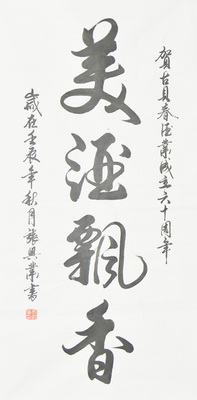 賀古貝春酒業成立六十周年
美酒飄香
歲在壬辰年秋月張興業書